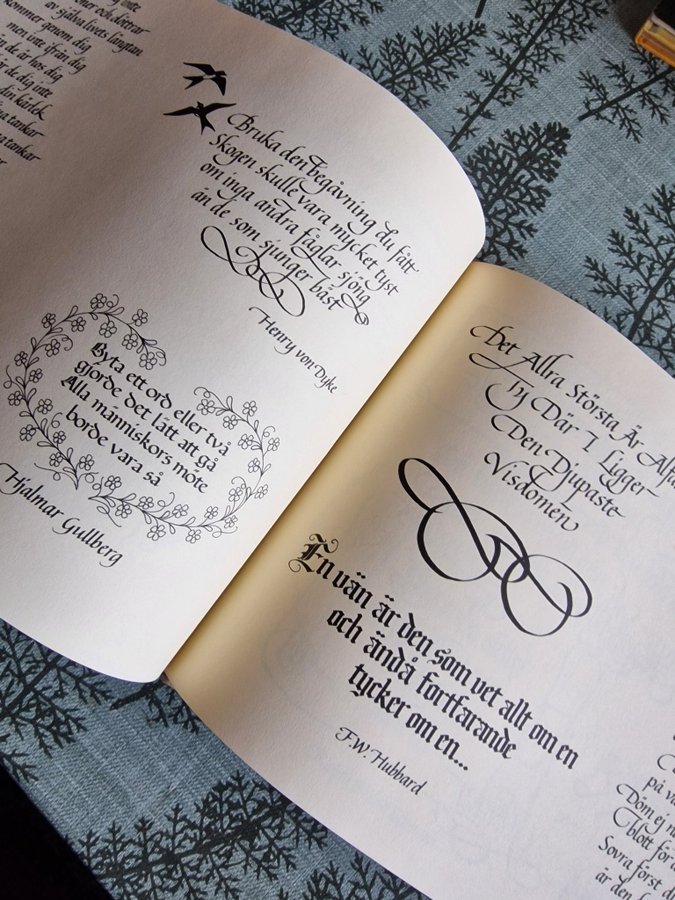 inte
av själva livets längtan
kommer genom dig
men inte ifrån dig
de är hos dig
de dig inte
din kärlek
tankar
tankar
Bruka den begåvning du fått
Skogen skulle vara mycket tyst
om inga andra fåglar sjöng
än de som sjunger bäst
Henry von Dyke
Byta ett ord eller två
gjorde det lätt att gå
Alla människors möte
borde vara så
Hjalmar Gullberg
Det Allra Största Är
Ty Där I Ligger
Den Djupaste
Visdomen
En vän är den som vet allt om en
och ändå fortfarande
tycker om en...
F.W. Hubbard
på
Döm ej
blott för
Sovra först
är den